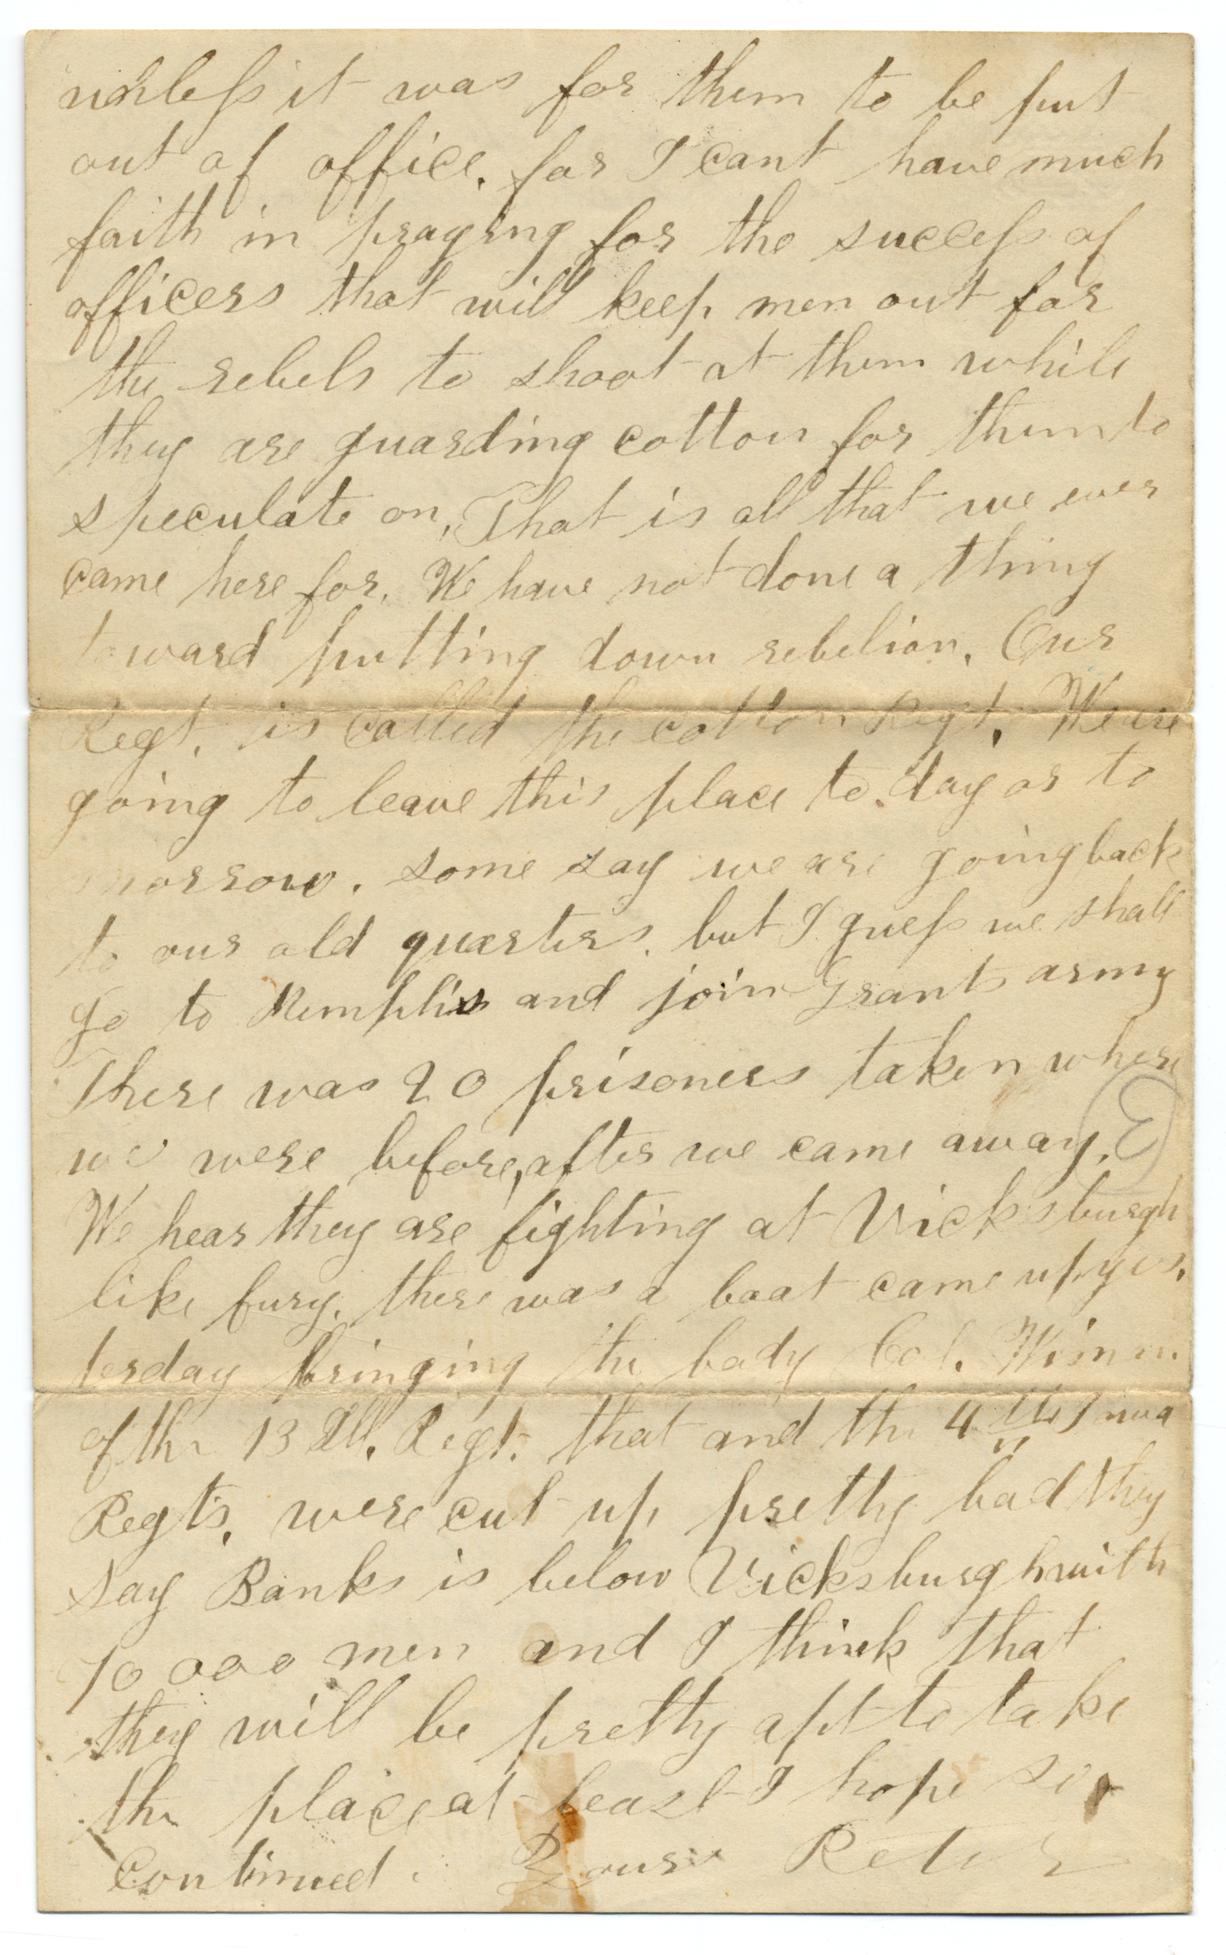 unless it was for them to be put
out of office. for I cant have much
faith in praying for the success of
officers that will keep men out for
the rebels to shoot at them while
they are guarding cotton for them to
speculate on, That is all that we ever
came here for. We have not done a thing
toward putting down rebelion. Our
Regt. is called the cotton Regt. We are
going to leave this place to day or to
morrow. some say we are going back
to our old quarters. but I guess we shall
go to Memphis and join Grants army
There was 20 prisoners taken where
we were before, after we came away.
We hear they are fighting at Vicksburgh
like fury. there was a boat came up yes.
terday bringing the body Col. 
of the 13 Ill. Regt. that and the 4th Iowa
Regts. were cut up pretty bad they
say Banks is below Vicksburgh with
10000 men and I think that
they will be pretty apt to take
the place at least I hope so,
Continued. Yours